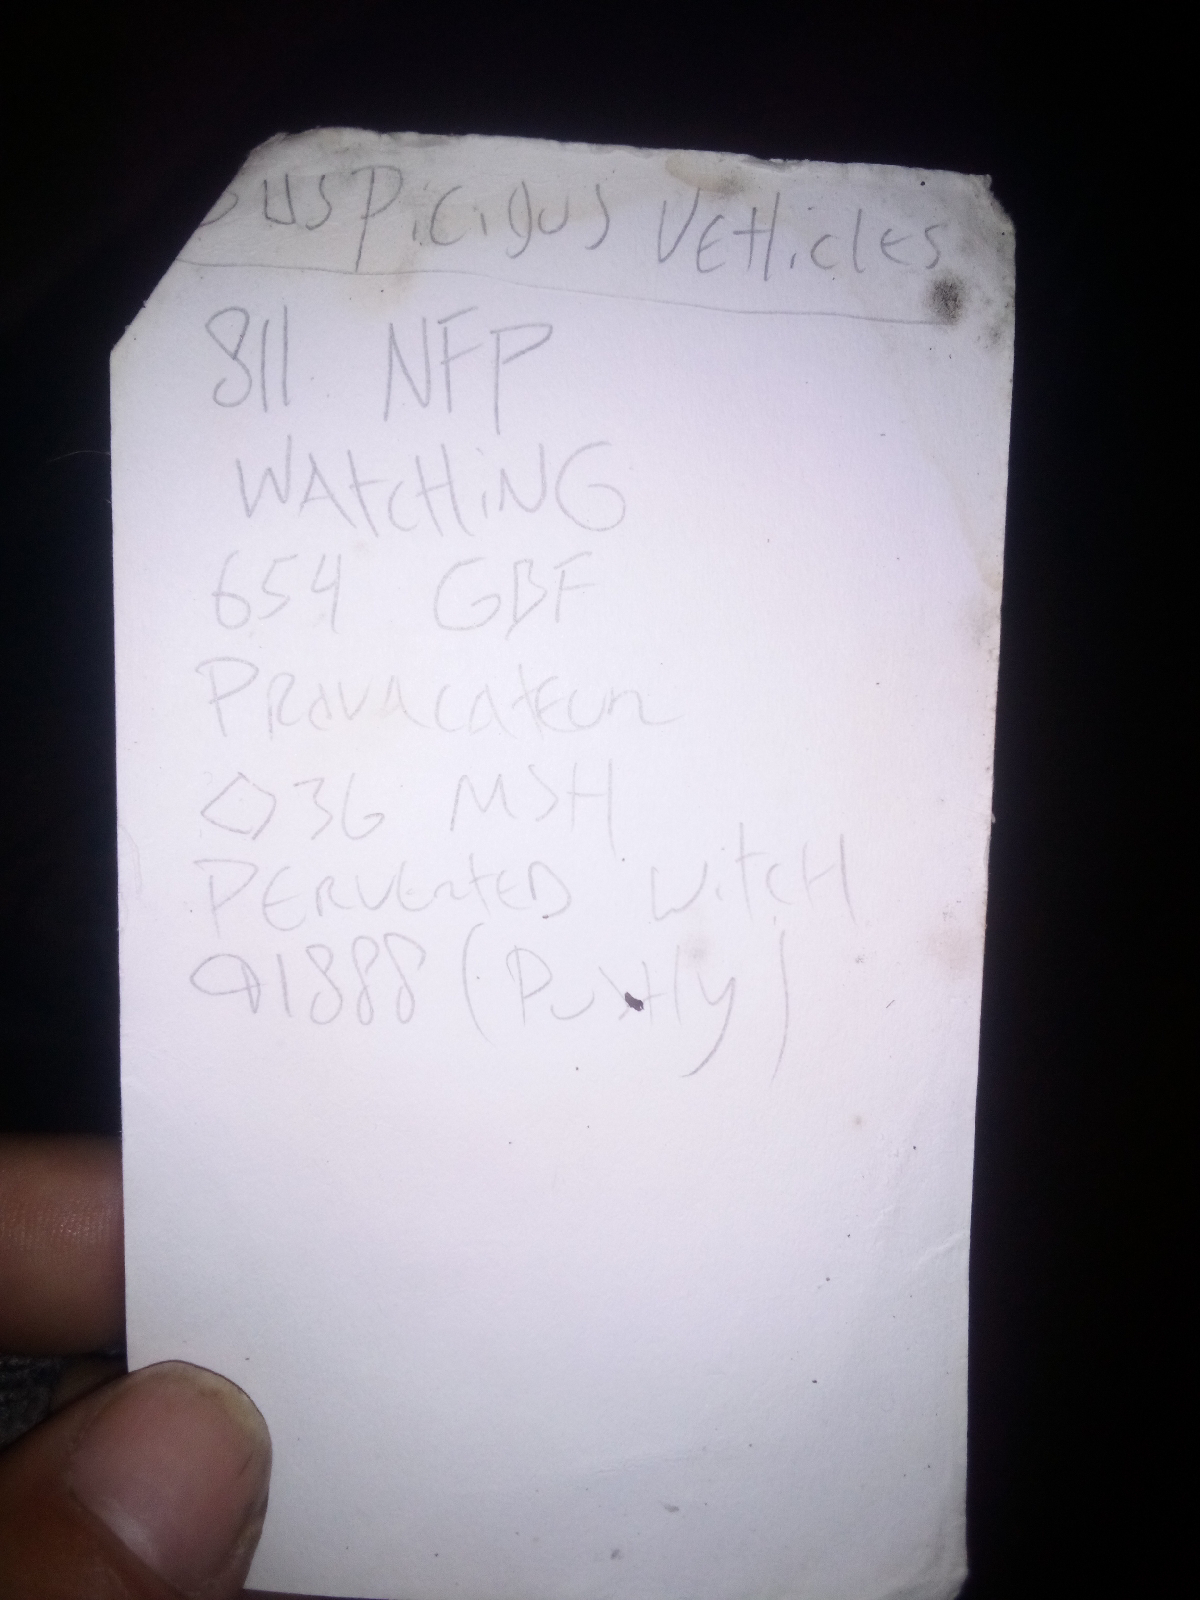 Suspicious Vehicles
811 NFP
WAtcHiNG
654 GBF
PROVACATEUR
◇36 MSH
PERVERTED WitcH
91888 (